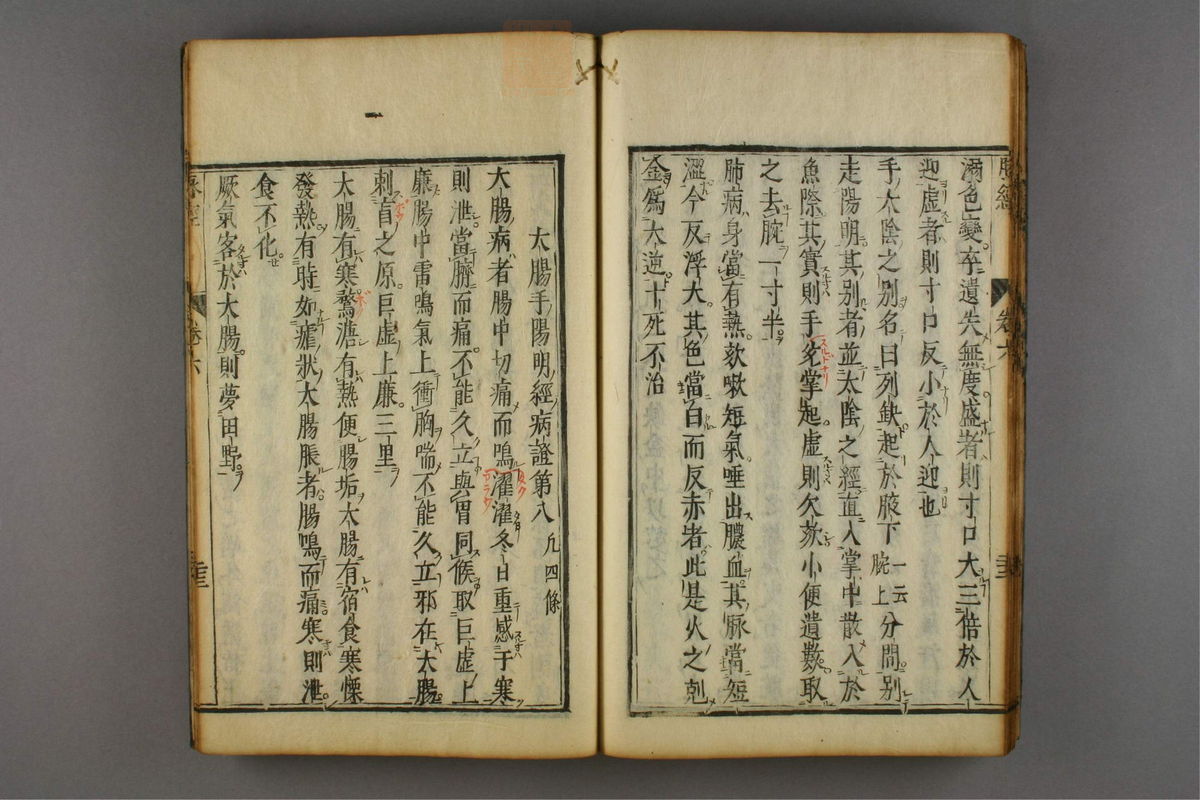 脉經
卷六
溺色變卒遺失無度盛者則寸口大三倍於人
迎虛者則寸口反小於人迎也
手太陰之別名曰列缺起於腋下一云腕上分間別
走陽明其別者並太陰之經直入掌中散入於
魚際其實則手兊掌起虛則欠㰦小便遺數取
之去腕一寸半
肺病身當有熱欬嗽短氣唾出膿血其脉當短
澀今反浮大其色當白而反赤者此是火之剋
金爲大逆十死不治
大腸手陽明經病證第八 凡四條
大腸病者腸中切痛而鳴濯濯冬日重感于寒
則泄當臍而痛不能久立與胃同候取巨虛上
廉腸中雷鳴氣上衝胸喘不能久立邪在大腸
刺肓之原巨虛上廉三里
大腸有寒鶩溏有熱便腸垢大腸有宿食寒慄
發熱有時如瘧狀大腸脹者腸鳴而痛寒則泄
食不化
厥氣客於大腸則夢田野
卷六